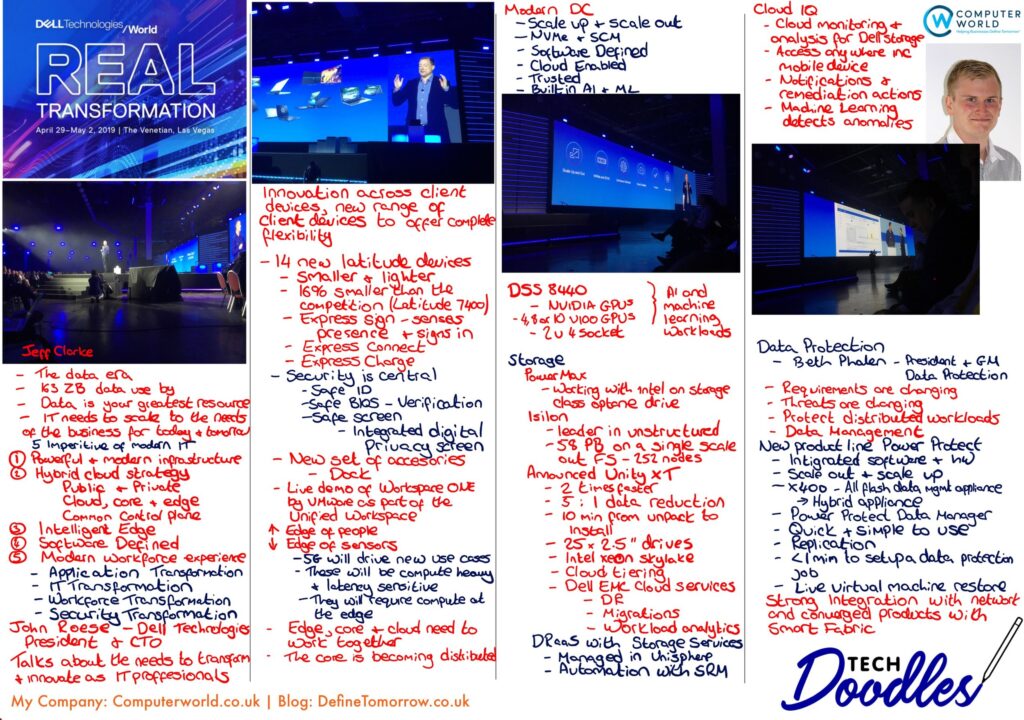 DELL Technologies World
REAL
TRANSFORMATION
April 29–May 2, 2019 | The Venetian, Las Vegas
Jeff Clarke
- The data era
- 163 ZB data use by
- Data is your greatest resource
- IT needs to scale to the needs
of the business for today & tomorrow
5 Imperitive of modern IT
① Powerful & modern infrastructure
② Hybrid cloud strategy
Public & Private
Cloud, core & edge
Common Control plane
③ Intelligent Edge
④ Software Defined
⑤ Modern workforce experience
- Application Transformation
- IT Transformation
- Workforce Transformation
- Security Transformation
John Roese - Dell Technologies
President & CTO
Talks about the needs to transform
& innovate as IT proffesionals
Innovation across client
devices, new range of
client devices to offer complete
flexibility
- 14 new latitude devices
- Smaller & lighter
- 16% smaller than the
competition (Latitude 7400)
- Express sign - senses
presence & signs in
- Express Connect
- Express Charge
- Security is central
- Safe ID
- Safe BIOS - Verification
- Safe screen
- Integrated digital
Privacy screen
- New set of accesories
- Dock
- Live demo of Workspace ONE
by VMware as part of the
Unified Workspace
↑ Edge of people
↓ Edge of sensors
- 5G will drive new use cases
- These will be compute heavy
& latency sensitive
- They will require compute at
the edge
- Edge, core & cloud need to
work together
- The core is becoming distributed
Modern DC
- Scale up & scale out
- NVMe & SCM
- Software Defined
- Cloud Enabled
- Trusted
- Built in AI & ML
DSS 8440
- NVIDIA GPUs
- 4, 8 or 10 V100 GPUs
- 2U 4 Socket
AI and
machine
learning
workloads
Storage
PowerMax
- Working with intel on storage
class optane drive
Isilon
- leader in unstructured
- 58 PB on a single scale
out FS - 252 nodes
Announced Unity XT
- 2 times faster
- 5 : 1 data reduction
- 10 min from unpack to
install
- 25 x 2.5" drives
- Intel xeon skylake
- Cloud tiering
- Dell EMC Cloud services
- DR
- Migrations
- Workload analytics
DRaaS with Storage Services
- Managed in Unisphere
- Automation with SRM
Cloud IQ
- Cloud monitoring &
analysis for Dell storage
- Access any where inc
mobile device
- Notifications &
remediation actions
- Machine Learning
detects anomolies
COMPUTER
WORLD
Helping Businesses Define Tomorrow
Data Protection
- Beth Phalen - President & GM
Data Protection
- Requirements are changing
- Threats are changing
- Protect distributed workloads
- Data Management
New product line Power Protect
- Intigrated software & HW
- Scale out & scale up
- X400 - All flash data mgmt appliance
→ Hybrid appliance
- Power Protect Data Manager
- Quick & simple to use
- Replication
- <1 min to setup a data protection
job
- Live virtual machine restore
Strong Integration with network
and converged products with
Smart Fabric
TECH
Doodles
My Company: Computerworld.co.uk | Blog: DefineTomorrow.co.uk